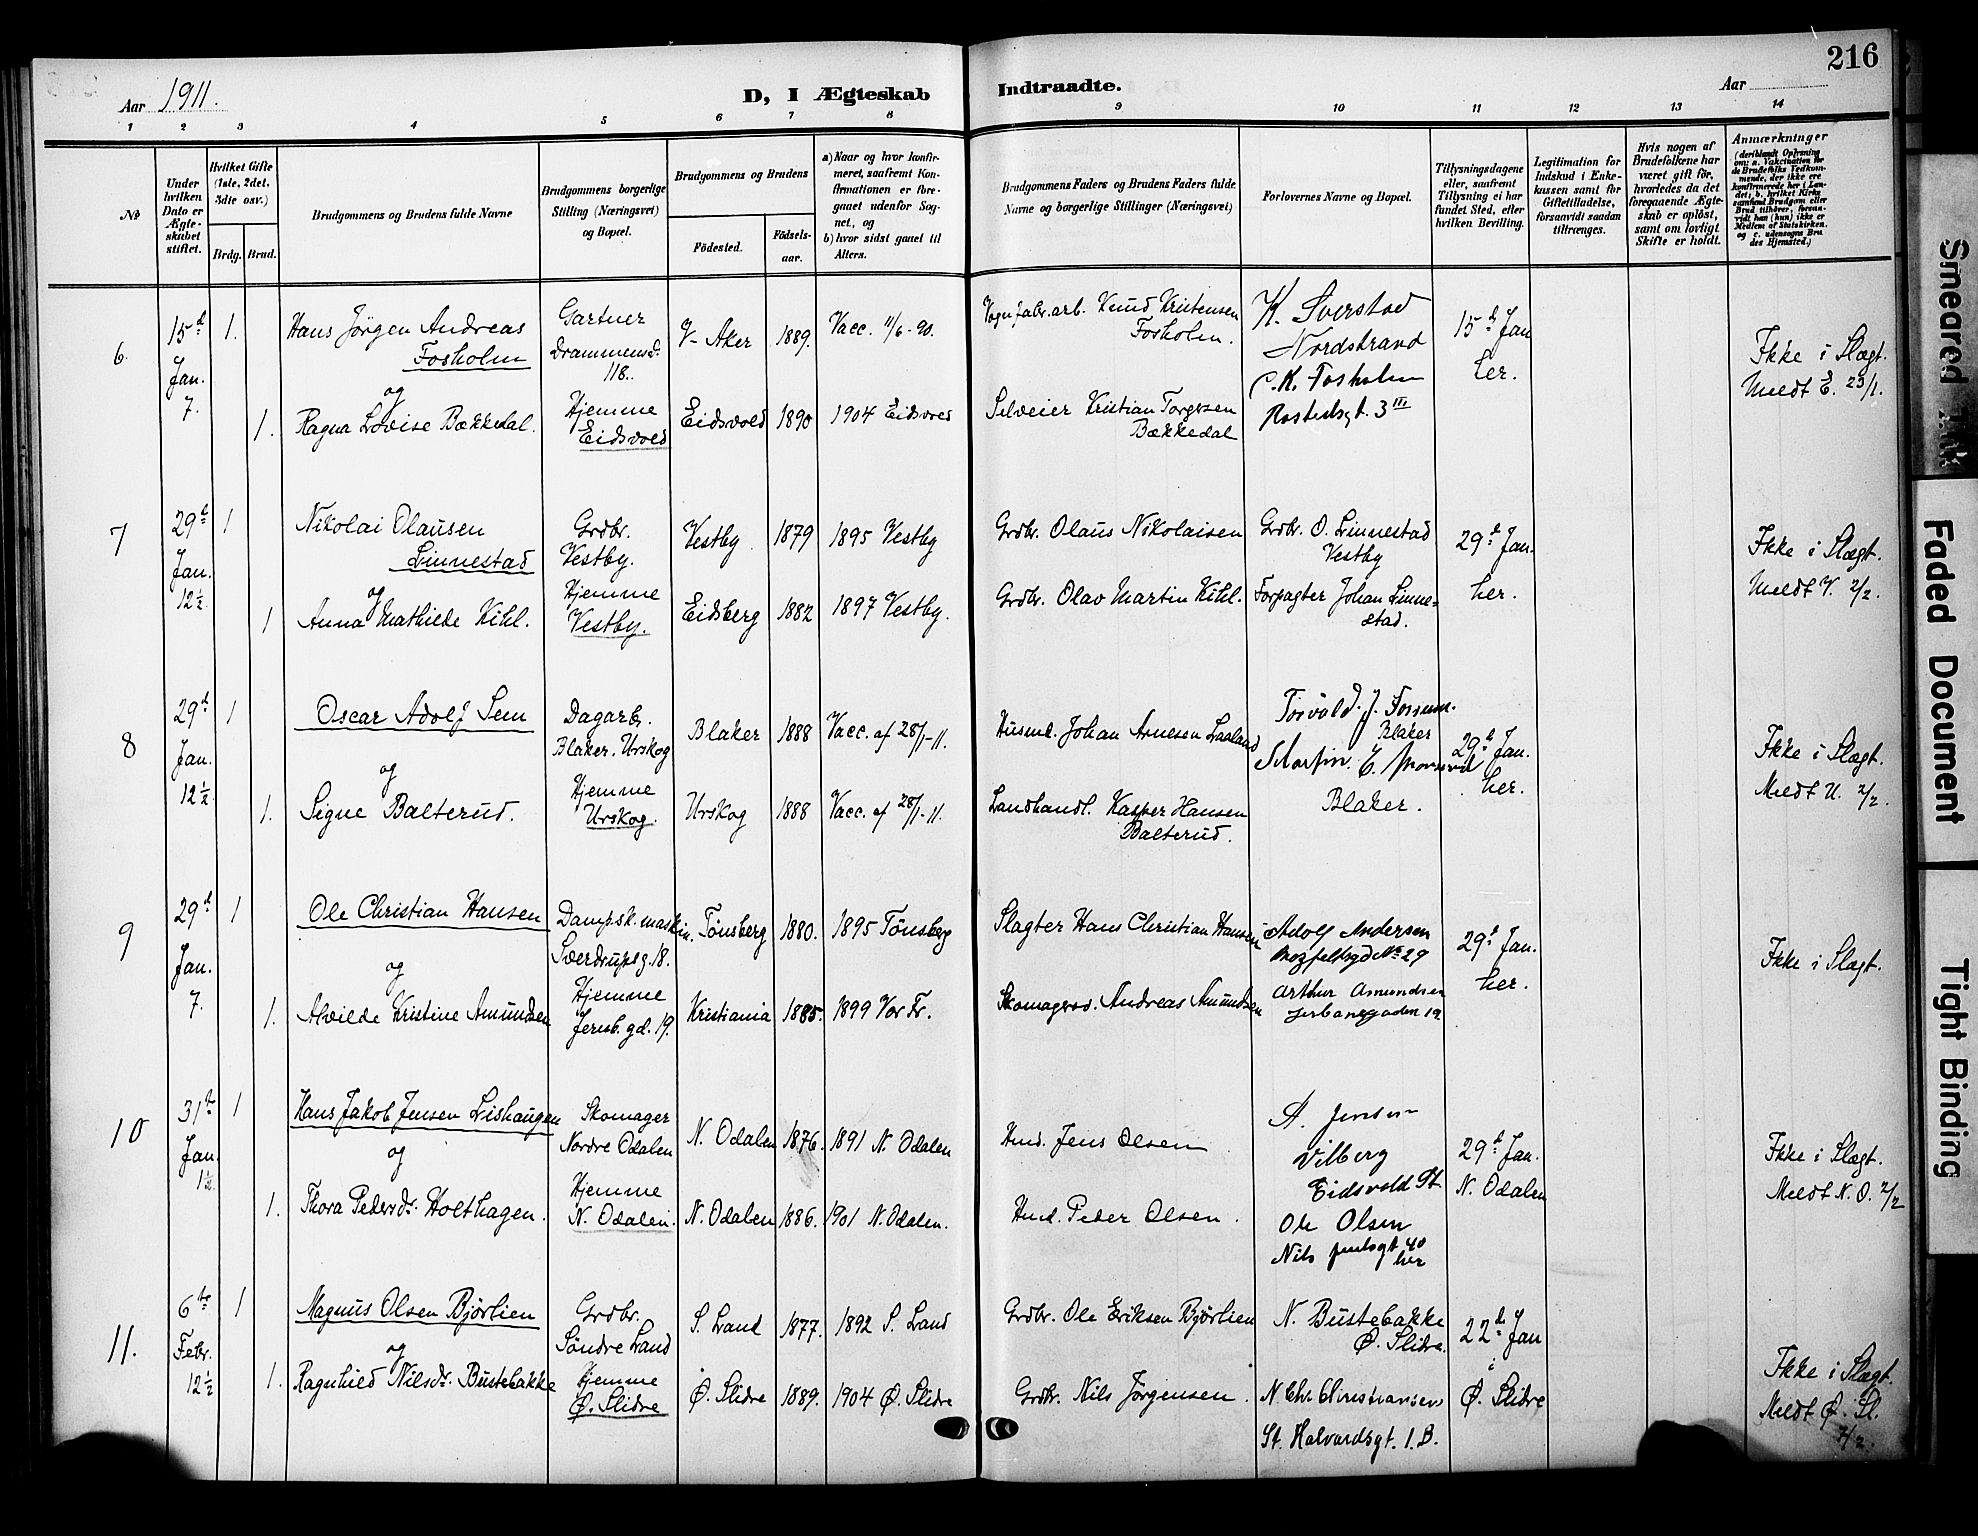 216
Aar 1911.
D, I Ægteskab Indtraadte.
Aar
1 2 3 4 5 6 7 8 9 10 11 12 13 14
No
Under hvilken Dato er Ægteskabet stiftet.
Hvilket Gifte (1ste, 2det, 3die osv.)
Brdg. Brud.
Brudgommens og Brudens fulde Navne
Brudgommens borgerlige Stilling (Næringsvei) og Bopæl.
Brudgommens og Brudens
Födested.
Födsels-aar.
a) Naar og hvor konfirmeret, saafremt Konfirmationen er foregaaet udenfor Sognet, og
b) hvor sidst gaaet til Alters.
Brudgommens Faders og Brudens Faders fulde Navne og borgerlige Stillinger (Næringsvei)
Forlovernes Navne og Bopæl.
Tillysningsdagene eller, saafremt Tillysning ei har fundet Sted, efter hvilken Bevilling.
Legitimation for Indskud i Enkekassen samt for Giftetilladelse, forsaavidt saadan tiltrænges.
Hvis nogen af Brudefolkene har været gift för, hvorledes da det foregaaende Ægteskab er oplöst, samt om lovligt Skifte er holdt.
Anmærkninger
(deriblandt Oplysning om: a. Vakcination for de Brudefolks Vedkommende, der ikke ere konfirmerede her i Landet; b. hvilket Kirkesamfund Brudgom eller Brud tilhører, forsaavidt han (hun) ikke er Medlem af Statskirken, og c. udensogns Brudes Hjemsted.)
6.
15d Jan. 7.
1.
Hans Jörgen Andreas
Fosholm
Gartner
Drammensv. 118.
V. Aker
1889.
Vacc. 11/6-90.
Vognfabr.arb. Knud Kristensen
Fosholm.
K. Sverstad
Nordstrand
C. K. Fosholm
Rostedsgt. 3 III
15d Jan
her.
Ikke i Slægt.
Meldt E. 23/1.
og
1.
Ragna Lovise Bækkedal.
Hjemme
Eidsvold
Eidsvold
1890
1904 Eidsvold
Selveier Kristian Torgersen
Bækkedal
7
29d Jan. 12½
1
Nikolai Olausen
Linnestad
Grdbr.
Vestby.
Vestby
1879
1895 Vestby
Grdbr. Olaus Nikolaisen
Grdbr. O. Linnestad
Vestby
29d Jan.
her.
Ikke i Slægt.
Meldt V. 2/2.
og
1
Anna Mathilde Kihl.
Hjemme
Vestby.
Eidsberg
1882
1897 Vestby.
Grdbr. Olav Martin Kihl.
Forpagter Johan Linne=
stad.
8
29d Jan. 12½
1
Oscar Adolf Sem
Dagarb.
Blaker. Urskog
Blaker
1888
Vacc. af 28/1-11.
Husmd. Johan Arnesen
Torvald J. Fossum.
Blaker
Martin E.
Blaker.
29d Jan.
her.
Ikke i Slægt.
Meldt U. 2/2.
og
1.
Signe Balterud.
Hjemme
Urskog.
Urskog
1888
Vacc. af 28/1-11.
Landhandl. Kasper Hansen
Balterud.
9
29d Jan. 7.
1
Ole Christian Hansen
Dampsk. maskin.
Sverdrupsg. 18.
Tönsberg
1880.
1895 Tönsberg
Slagter Hans Christian Hansen
Adolf Andersen
No 29
29d Jan.
her.
Ikke i Slægt.
og
1.
Alvilde Kristine Amundsen
Hjemme
Jernb. gd. 19.
Kristiania
1885.
1899 Vor Fr.
Skomagersv. Andreas Amundsen
Arthur Amundsen
19
10
31te Jan. 1½.
1
Hans Jakob Jensen Lishaugen
Skomager
Nordre Odalen
N. Odalen
1876.
1891 N. Odalen
Hmd. Jens Olsen
A. Jensen
Vilberg
Eidsvold St.
29d Jan.
N. Odalen
Ikke i Slægt.
Meldt N. O. 2/2
og
1.
Thora Pedersdr. Holthagen.
Hjemme
N. Odalen.
N. Odalen
1886.
1901 N. Odalen.
Hmd. Peter Olsen.
Ole Olsen
Nils Juelsgt 40
her
11.
6te Febr. 12½
1
Magnus Olsen Björlien
Grdbr.
Söndre Land
S. Land
1877.
1892 S. Land
Grdbr. Ole Eriksen Björlien
N. Bustebakke
Ø. Slidre
22d Jan
i
Ø. Slidre
Ikke i Slægt.
Meldt Ø. Sl.
7/2.
og
1.
Ragnhild Nilsdr. Bustebakke
Hjemme
Ø. Slidre
Ø. Slidre
1889.
1904 Ø. Slidre
Grdbr. Nils Jörgensen.
N. Chr. Christiansen
St. Halvardsgt. 1. B.
Smeared Ink
Faded Document
Tight Binding